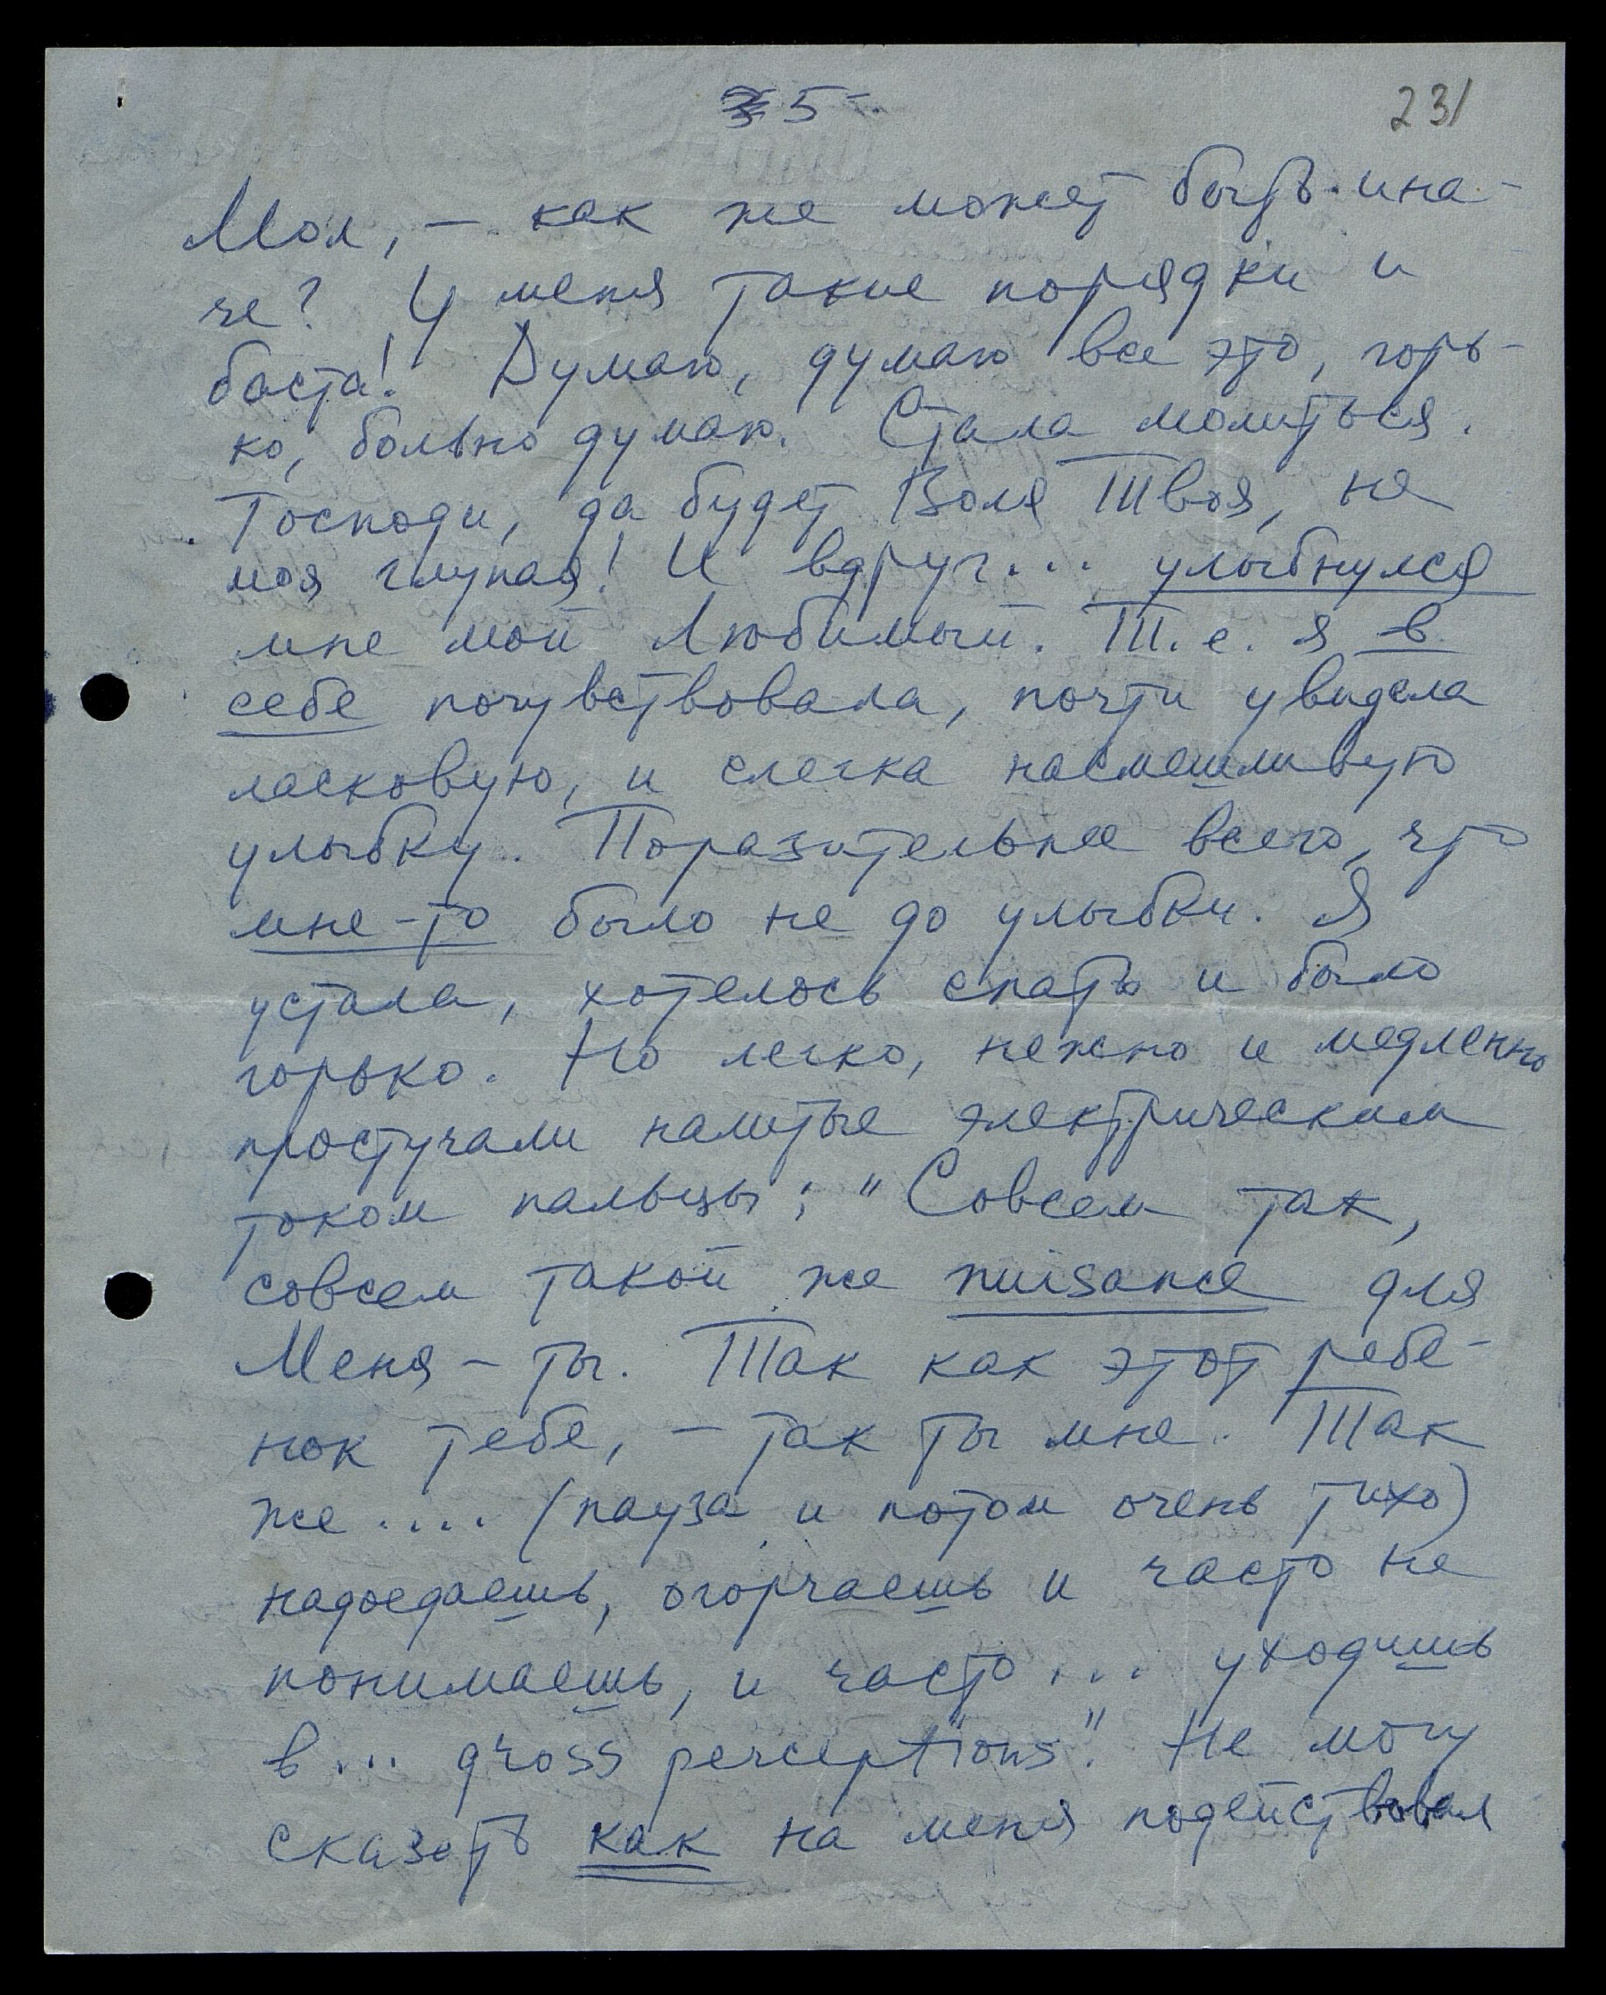 5-
231
Мол, – как же может быть ина-
че? У меня такие порядки и
баста! Думаю, думаю все это, горь-
ко, больно думаю. Стала молиться.
Господи, да будет Воля Твоя, не
моя глупая! И вдруг... улыбнулся
мне мой Любимый. Т.е. я в
себе почувствовала, почти увидела
ласковую, и слегка насмешливую
улыбку. Поразительнее всего, что
мне-то было не до улыбки. Я
устала, хотелось спать и было
горько. Но легко, нежно и медленно
простучали налитые электрическим
током пальцы; "Совсем так,
совсем такой же nuisance для
Меня – ты. Так как этот ребе-
нок тебе, – так ты мне. Так
же.... (пауза и потом очень тихо)
надоедаешь, огорчаешь и часто не
понимаешь, и часто... уходишь
в... gross perceptions". Не могу
сказать как на меня подействовал